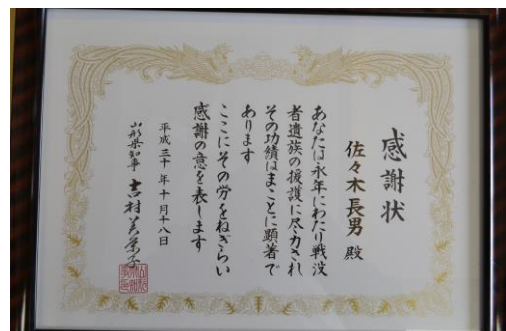 感謝状
佐々木長男 殿
あなたは永年にわたり戦没
者遺族の援護に尽力され
その功績はまことに顕著で
あります
ここにその労をねぎらい
感謝の意を表します
平成三十年十月十八日
山形県知事 吉村美栄子